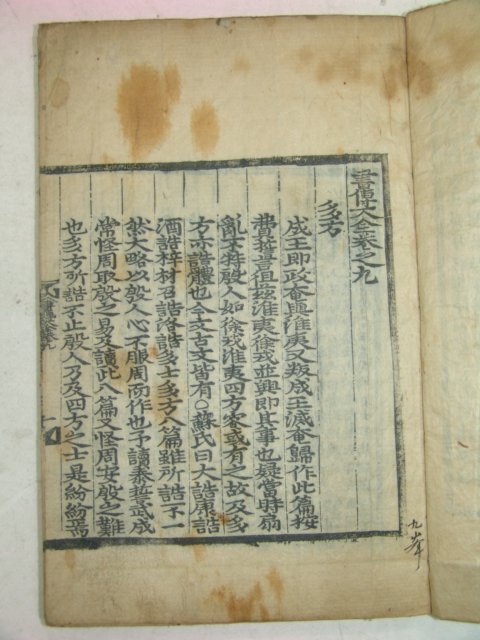 書傳大全卷之九
多方
成王即政奄與淮夷又叛成王滅奄歸作此篇按
費誓言徂茲淮夷徐戎並興即其事也疑當時扇
亂不特殷人如徐戎淮夷四方容或有之故及多
方亦誥體也今文古文皆有○蘇氏曰大誥康誥
酒誥梓材召誥洛誥多士多方八篇雖所誥不一
然大略以殷人心不服周而作也予讀泰誓武成
常怪周取殷之易及讀此八篇又怪周安殷之難
也多方所誥不止殷人乃及四方之士是紛紛焉
九峯